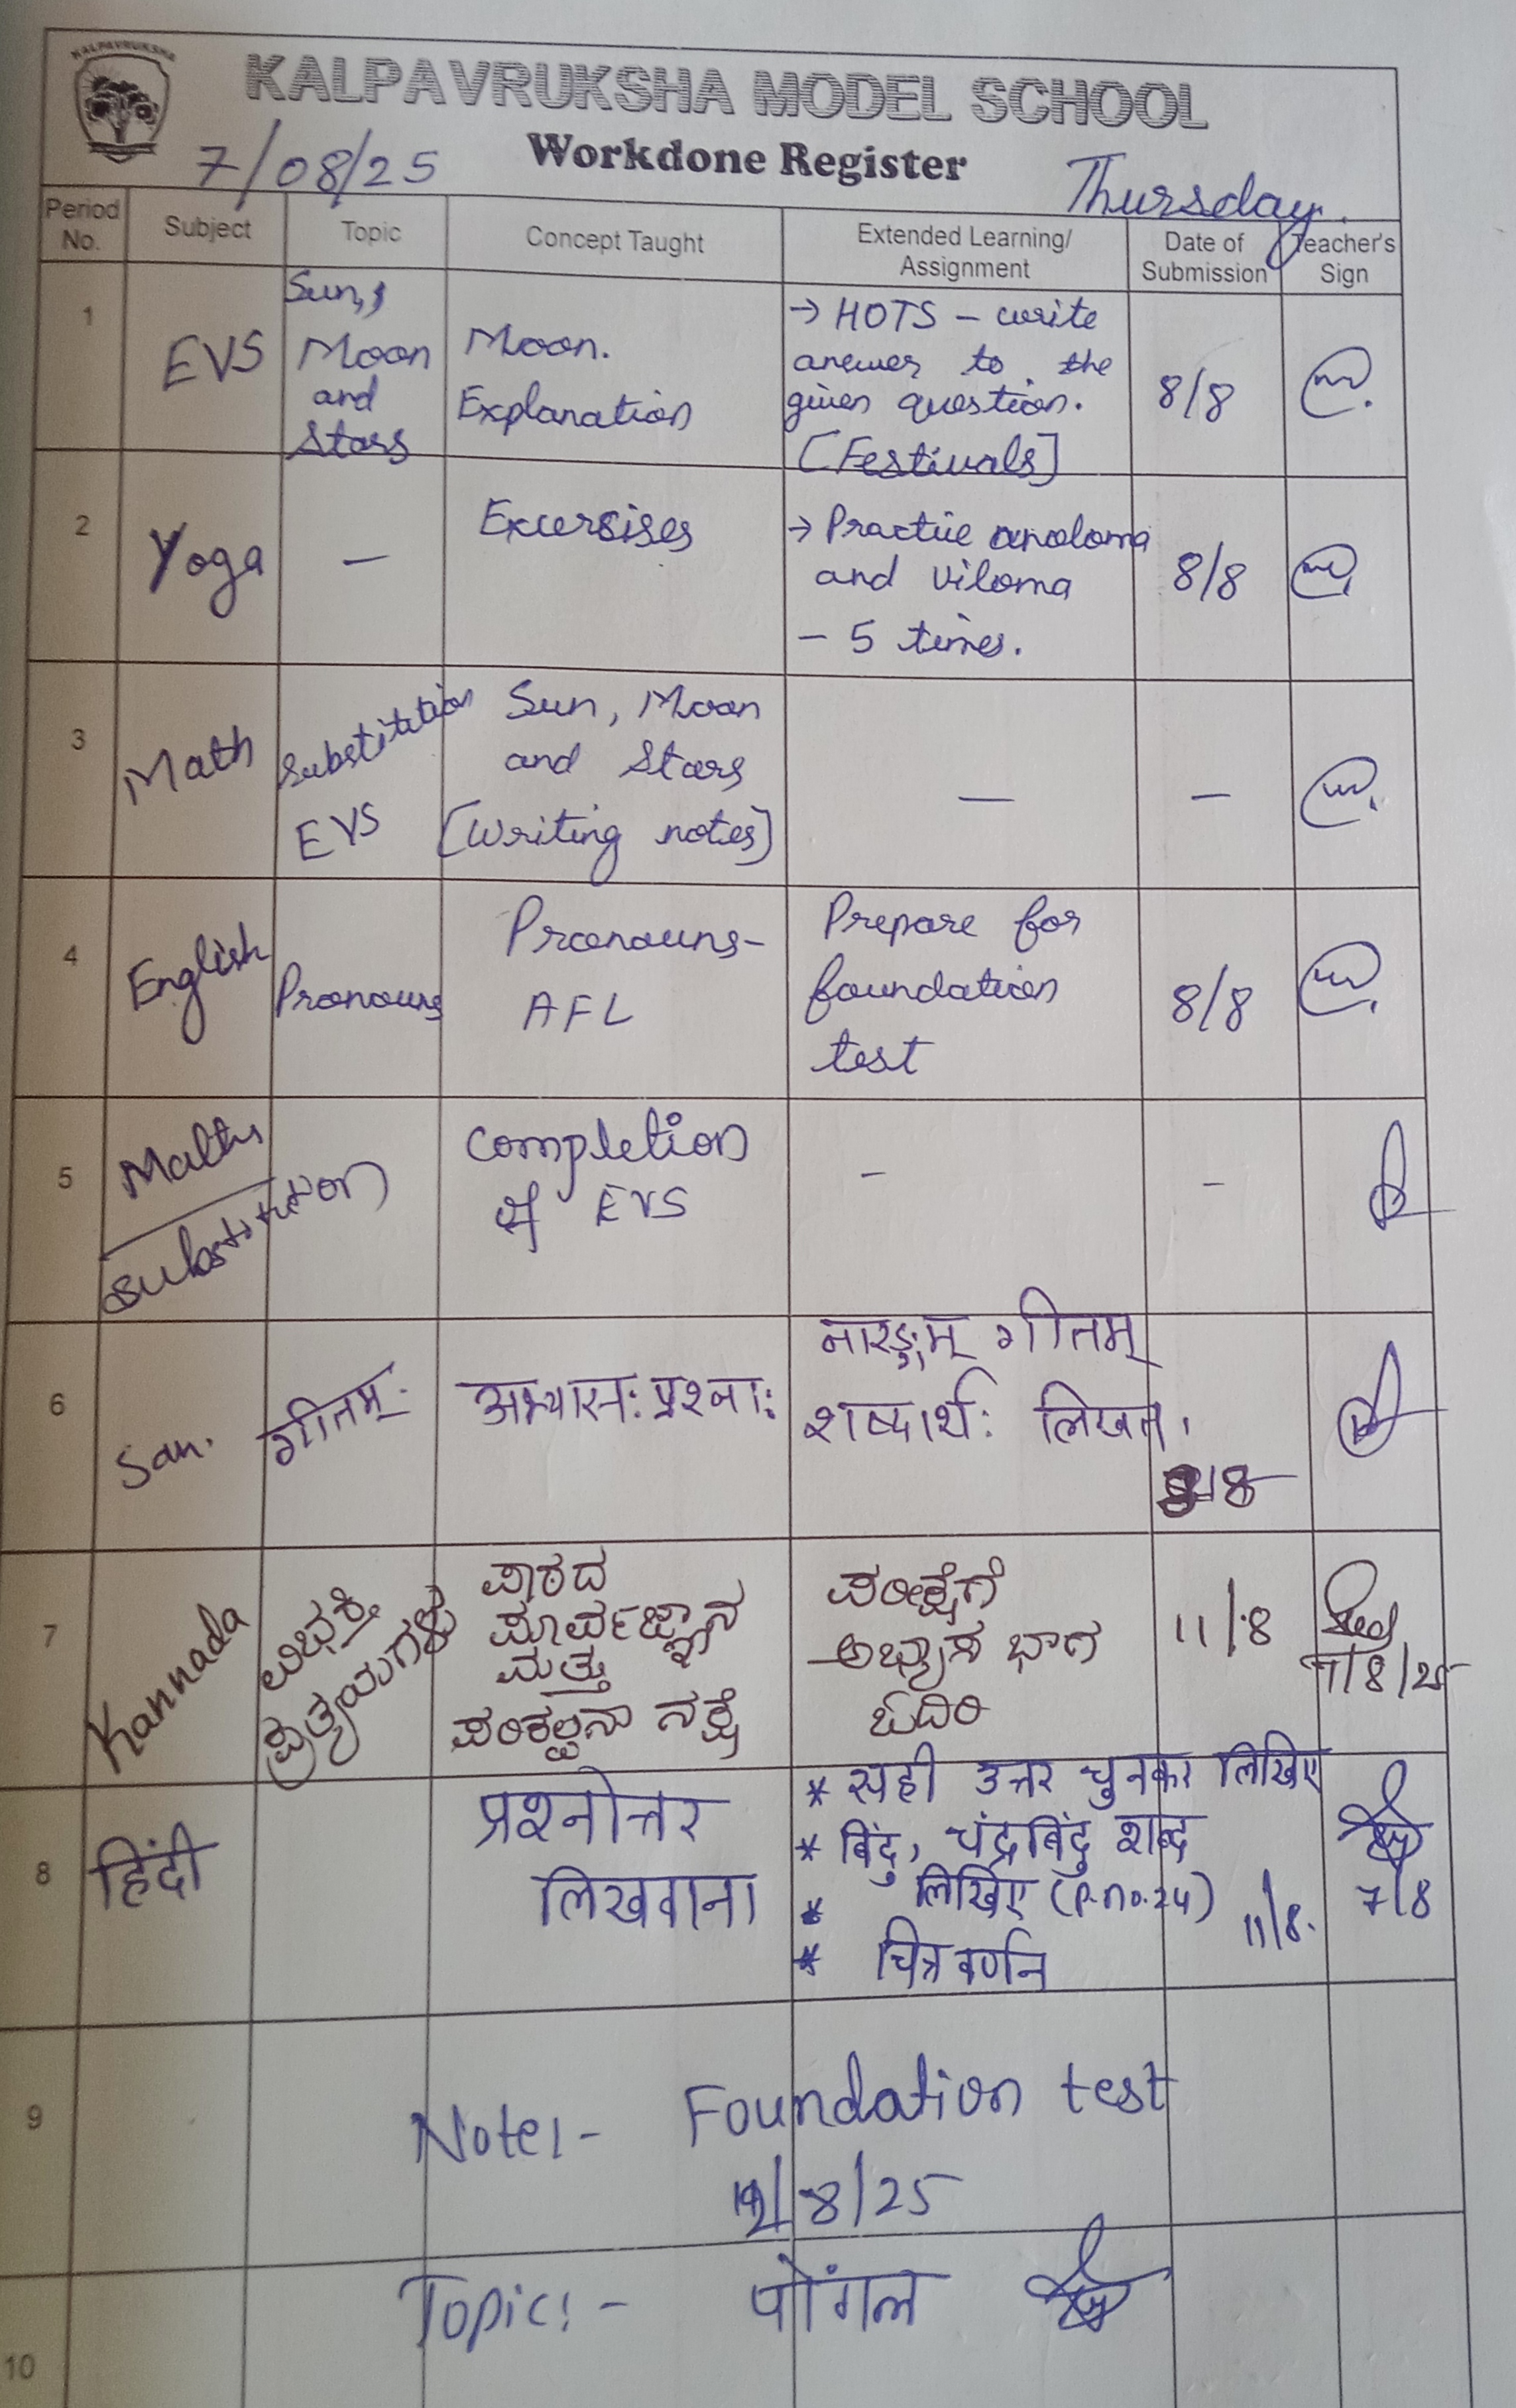 KALPAVRUKSHA
KALPAVRUKSHA MODEL SCHOOL
Workdone Register
7/08/25
Thursday.
Period No.
Subject
Topic
Concept Taught
Extended Learning/
Assignment
Date of
Submission
Teacher's
Sign
1
EVS
Sun,
Moon
and
Stars
Moon.
Explanation
→ HOTS - write
answer to the
given question.
[Festivals]
8/8
2
Yoga
—
Excersises
→ Practice anoloma
and viloma
- 5 times.
8/8
3
Math
Substitution
EVS
Sun, Moon
and Stars
[Writing notes]
—
—
4
English
Pronouns
Pronouns-
AFL
Prepare for
foundation
test
8/8
5
Maths
Substitution
Completion
of EVS
-
-
6
San.
गीतम्
अभ्यासः प्रश्नाः
गीतम्
शब्दार्थः लिखत।
/8
7
Kannada
ವಿಭಕ್ತಿ
ಪ್ರತ್ಯಯಗಳು
ಪಾಠದ
ಪೂರ್ವಜ್ಞಾನ
ಮತ್ತು
ಪರಿಕಲ್ಪನಾ ನಕ್ಷೆ
ಪರೀಕ್ಷೆಗೆ
ಅಭ್ಯಾಸ ಭಾಗ
ಓದಿರಿ
11/8
7/8/25
8
हिंदी
प्रश्नोत्तर
लिखवाना
* सही उत्तर चुनकर लिखिए
* बिंदु, चंद्रबिंदु शब्द
लिखिए (P.no.24)
* चित्र वर्णन
11/8.
7/8
9
Note:- Foundation test
/8/25
10
Topic:- पोंगल